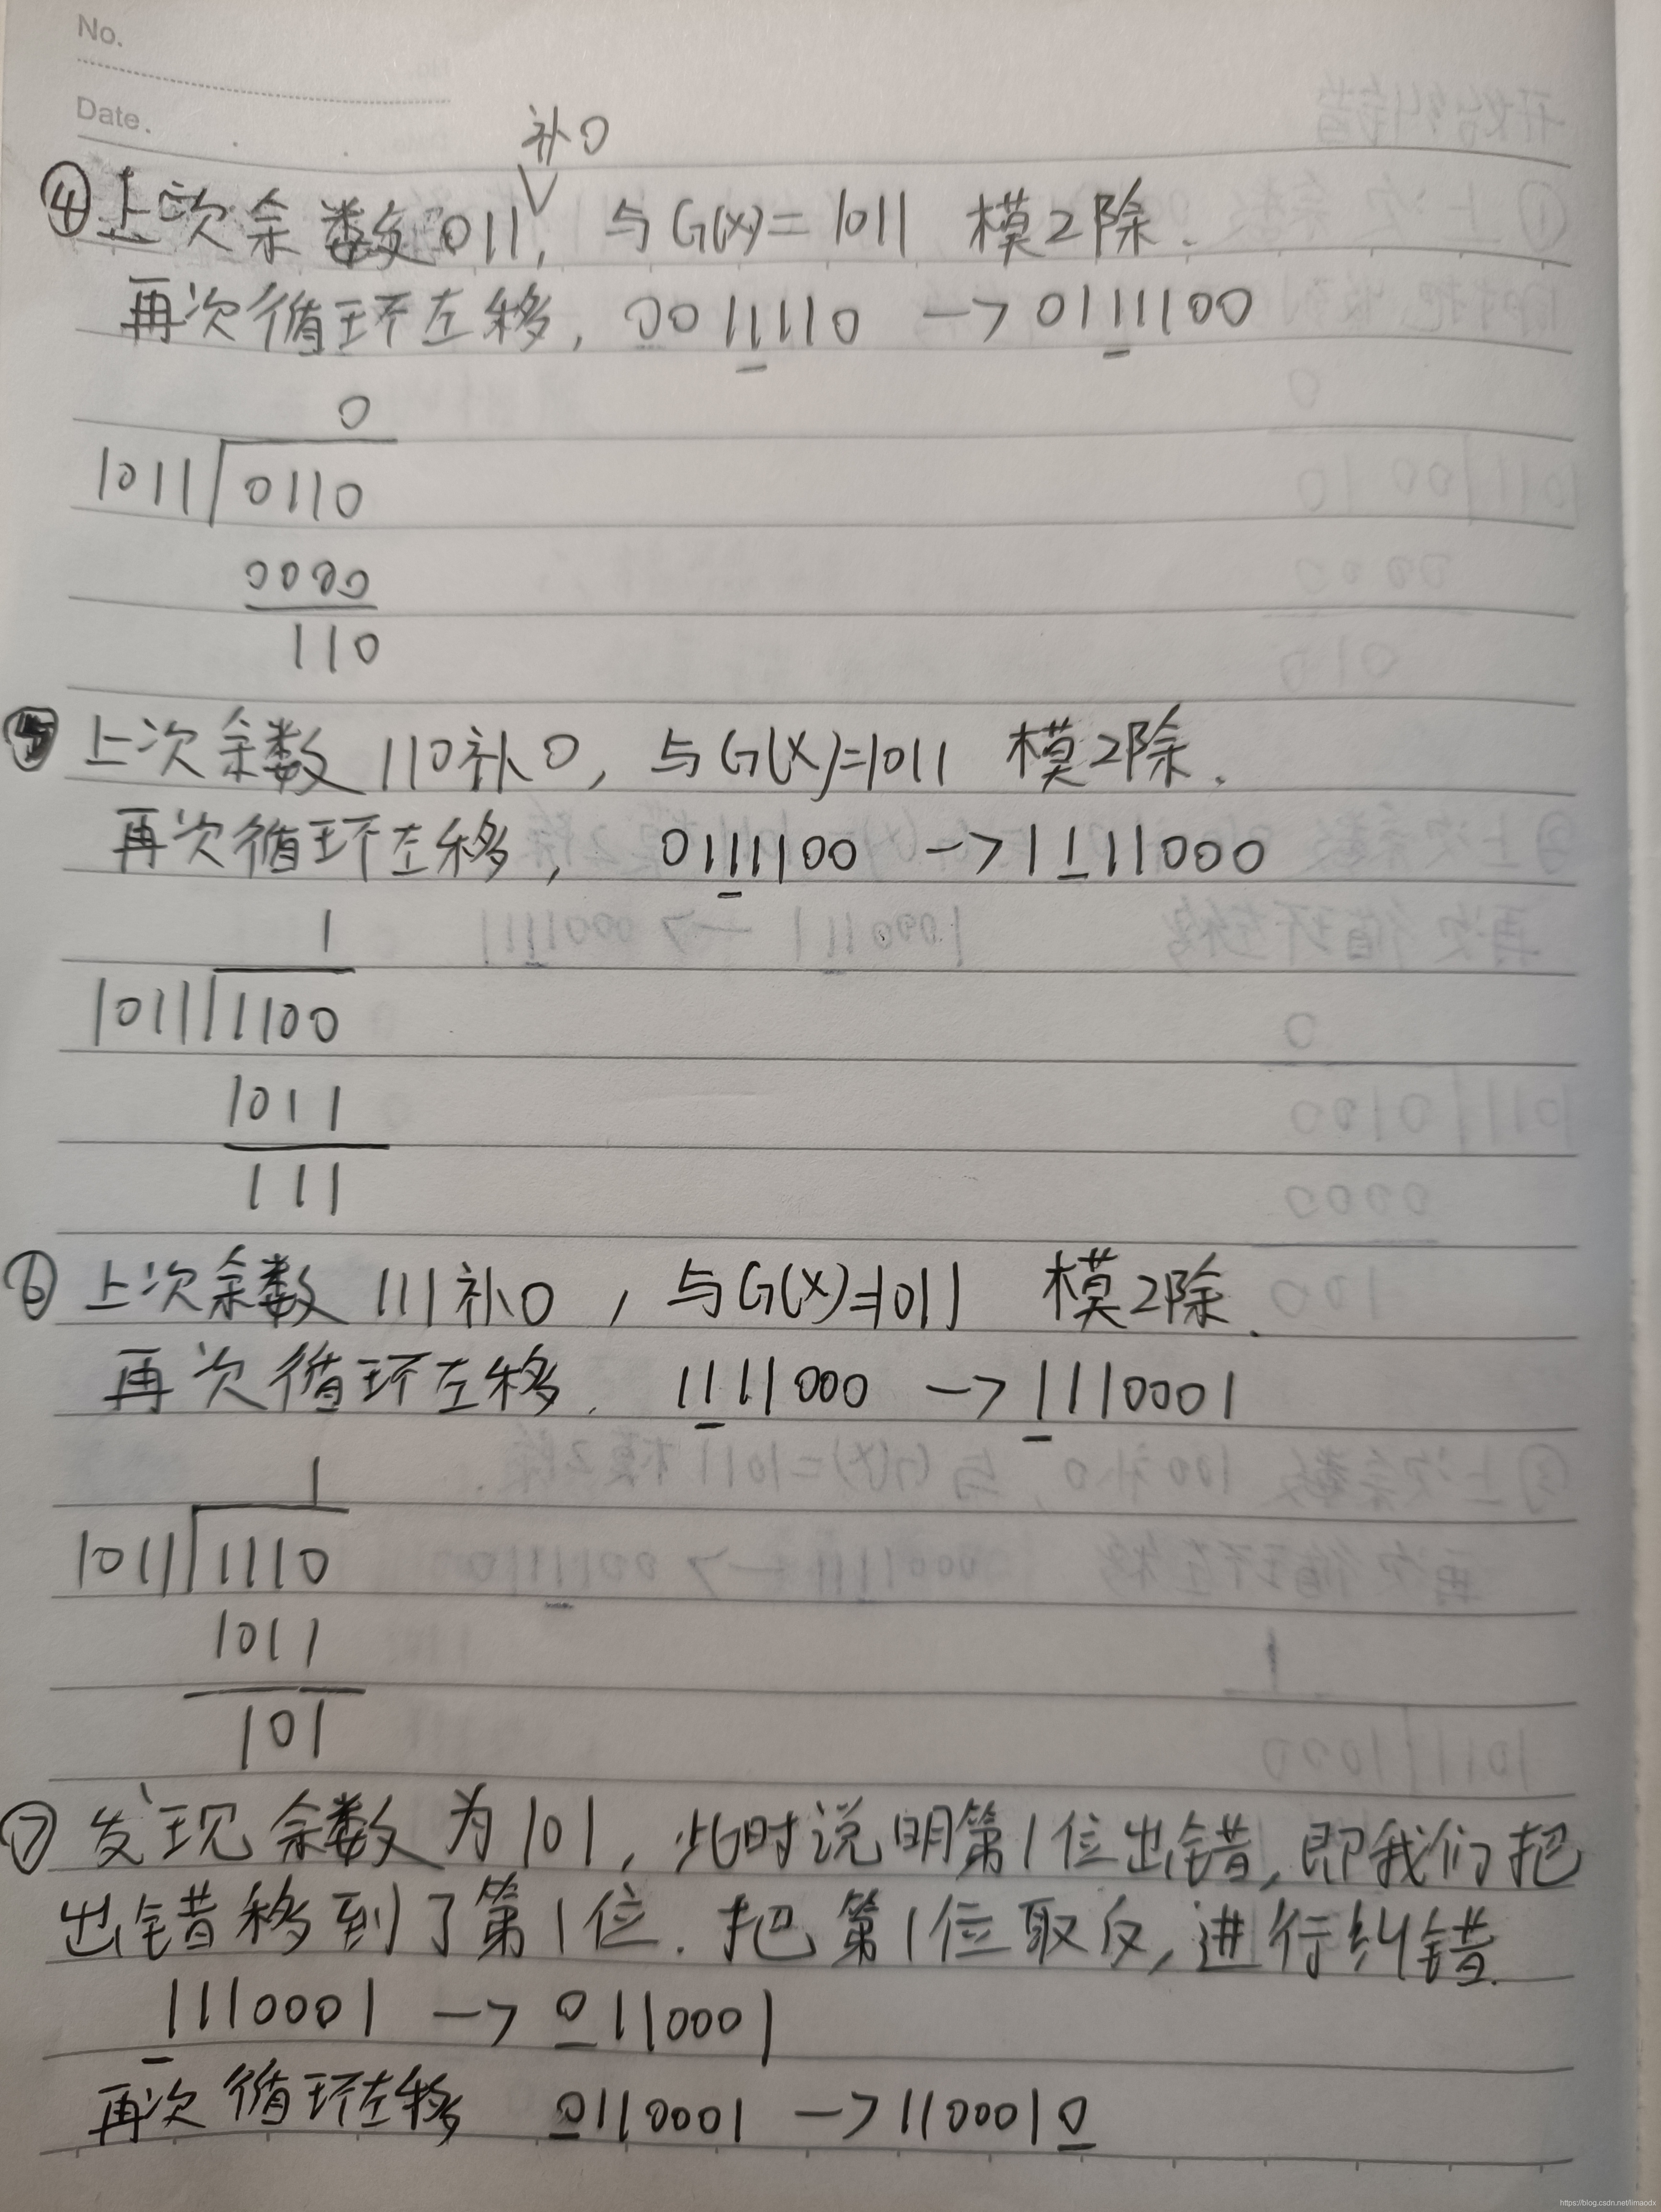 No.
Date.
补0
④上次余数011, 与G(X)=1011 模2除.
再次循环左移, 0011110 —> 0111100
0
1011 0110
0000
110
⑤上次余数 110补0, 与G(X)=1011 模2除.
再次循环左移, 0111100 —> 1111000
1
1011 1100
1011
111
⑥上次余数 111补0, 与G(X)=1011 模2除.
再次循环左移. 1111000 —> 1110001
1
1011 1110
1011
101
⑦ 发现余数为101, 此时说明第1位出错, 即我们把
出错移到了第1位. 把第1位取反, 进行纠错.
1110001 —> 0110001
再次循环左移 0110001 —> 1100010
https://blog.csdn.net/limaodx